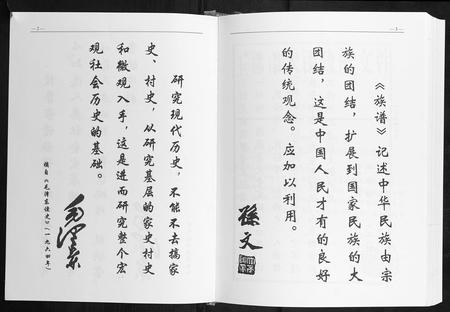 《族谱》记述中华民族由宗
族的团结，扩展到国家民族的大
团结，这是中国人民才有的良好
的传统观念。应加以利用。
孫文
研究现代历史，不能不去搞家
史、村史，从研究基层的家史村史
和微观入手，这是进而研究整个宏
观社会历史的基础。
摘自《毛泽东读史》(一九六四年)
毛泽东